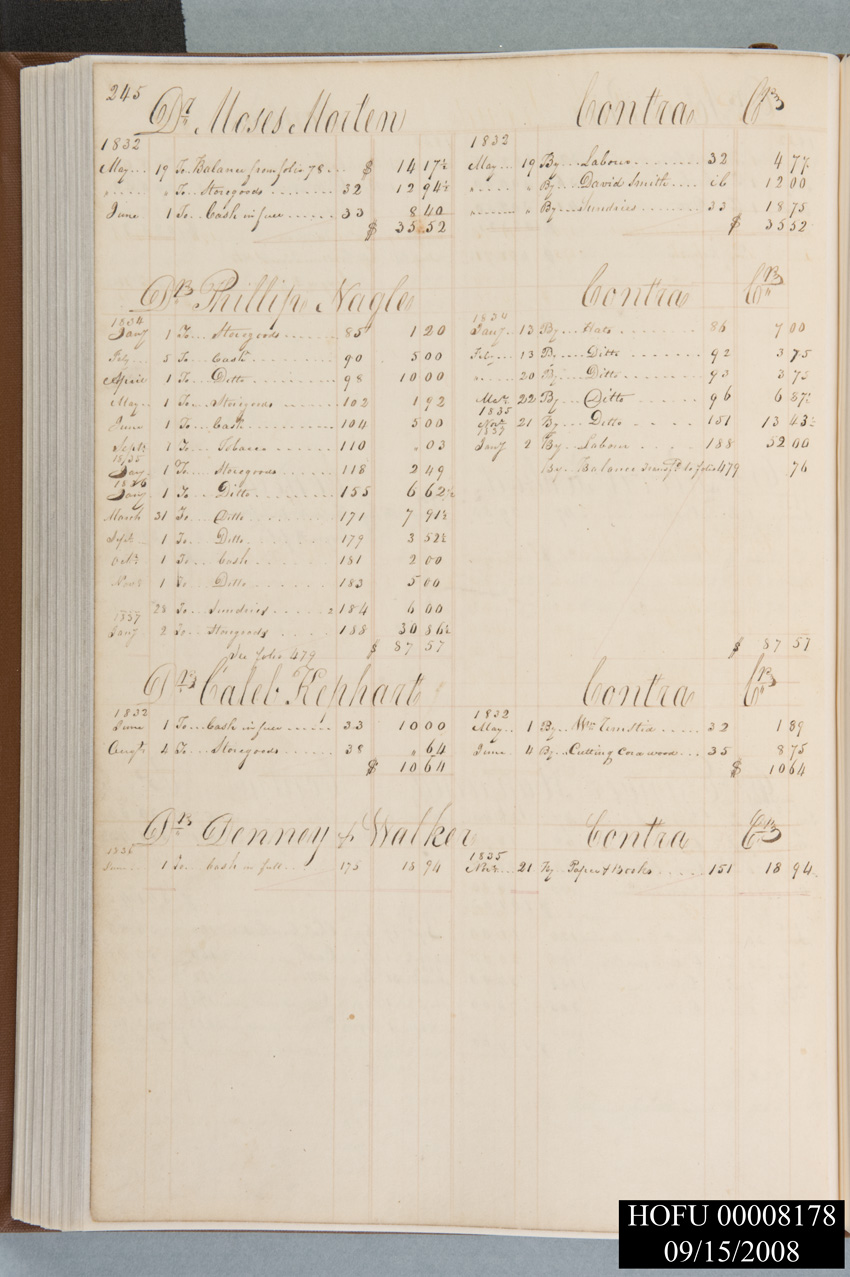 245
Dr Moses Morten Contra Cr
1832
May 19 To Balance from folio 78 $ 14 17½
" " To Storegoods 32 12 94½
June 1 To Cash in full 33 8 40
$ 35.52
1832
May 19 By Labour 32 4 77
" " By David Smith ib 12 00
" " By Sundries 33 18 75
$ 35 52
Dr Phillip Nagle Contra Cr
1834
Jany 1 To Storegoods 85 1 20
Feby 5 To Cash 90 5 00
April 1 To Ditto 98 10 00
May 1 To Storegoods 102 1 92
June 1 To Cash 104 5 00
Sept 1 To Tobacco 110 " 03
1835
Jany 1 To Storegoods 118 2 49
1836
Jany 1 To Ditto 155 6 62½
March 31 To Ditto 171 7 91½
Sept 1 To Ditto 179 3 52½
Octr 1 To Cash 181 2 00
Novr 1 To Ditto 183 5 00
" 28 To Sundries 184 6 00
1837
Jany 2 To Storegoods 188 30 86½
See folio 479 $ 87 57
1834
Jany 13 By 86 7 00
Feby 13 By Ditto 92 3 75
" 20 By Ditto 93 3 75
Mar 22 By Ditto 96 6 87½
1835
Novr 21 By Ditto 151 13 43½
1837
Jany 2 By Labour 188 52 00
By Balance transfd to folio 479 76
$ 87 57
Dr Caleb Kephart Contra Cr
1832
June 1 To Cash in full 33 10 00
Augt 4 To Storegoods 38 " 64
$ 10 64
1832
May 1 By Wm Umstid 32 1 89
June 4 By Cutting Cord wood 35 8 75
$ 10 64
Dr Denney & Walker Contra Cr
1836
1 To Cash in full 175 18 94
1835
Novr 21 By Paper & Books 151 18 94
HOFU 00008178
09/15/2008